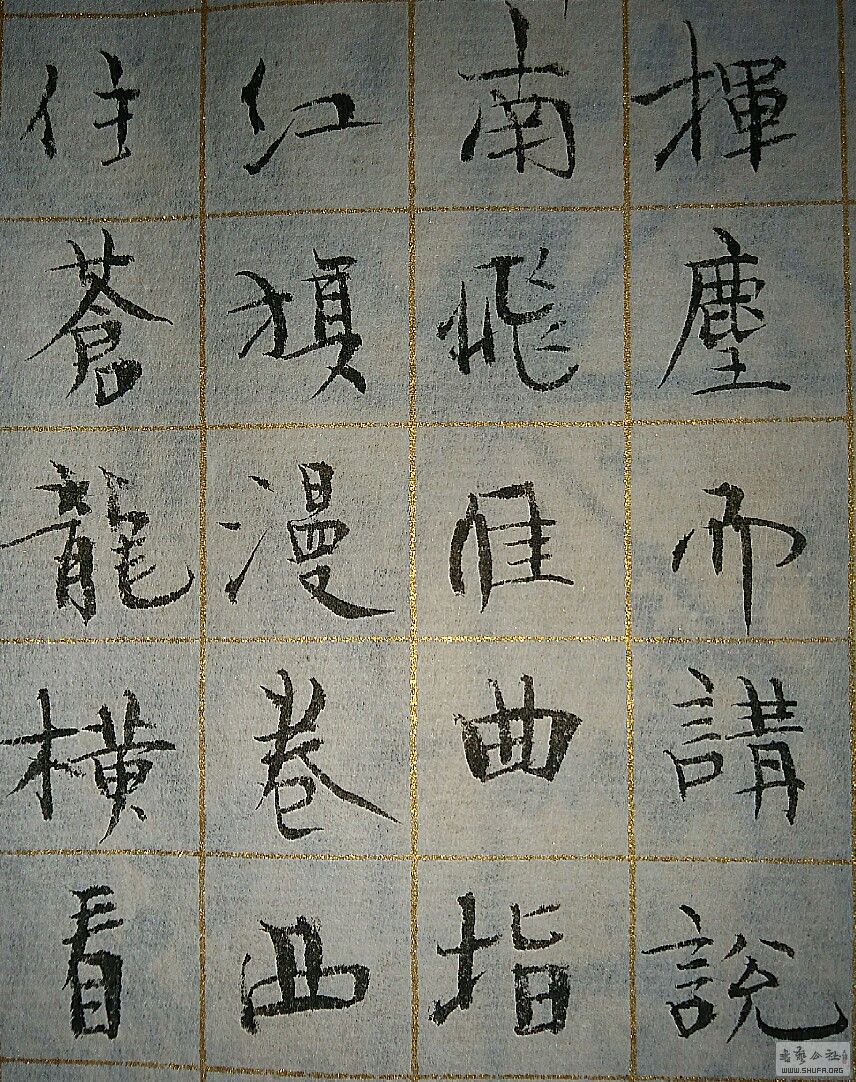 揮塵而講說
南飛雁曲指
紅旗漫卷西
住蒼龍橫看
書藝公社
WWW.SHUFA.ORG